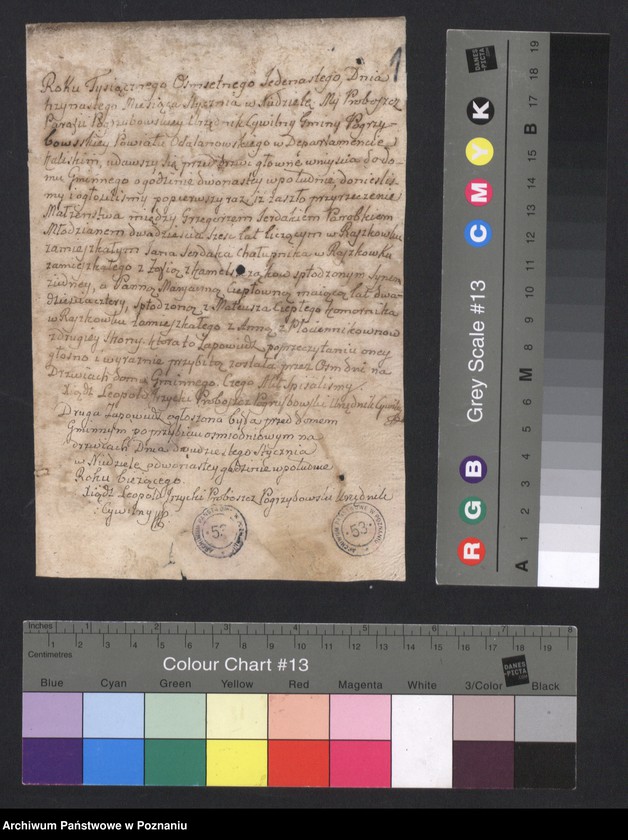 1
Roku Tysiącznego Osmsetnego Jedenastego, Dnia
trzynastego Miesiąca Stycznia w Niedzielę My Proboszcz
Urzędnik Cywilny Gminy Pogrzy-
bowskiey Powiatu Odalanowskiego w Departamencie
Kaliskim, udawszy się przed drzwi głowne wniyscia do do-
mu Gminnego o godzinie dwonastey w południe, doniesliś-
my i ogłosiliśmy po pierwszy raz, iż zaszło przyrzeczenie
Małżenstwa między Grzegorzem Serdakiem Parobkiem
Młodzianem dwadziescia szesć lat liczącym w Raszkowku
zamieszkałym Jana Serdaka chałupnika w Raszkowku
zamieszkałego z Zofią z spłodzonym Synem
z iedney, a Panną Maryanną Ciepłowną maiącą lat dwa-
dziescia cztery, spłodzoną z Mateusza Ciepłego komornika
w Raszkowku zamieszkałego z Anną z Płociennikownow
z drugiey strony. ktora to Zapowiedź po przeczytaniu oney
głosno i wyraznie przybitą została przez Osm dni na
Drzwiach domu Gminnego. Czego Akt spisaliśmy.
Xiądz Leopold Jrzycki Proboszcz Pogrzybowski Urzędnik Cywilny
Druga Zapowiedź ogłoszona była przed domem
Gminnym po przybiciu osmiodniowym na
drzwiach Dnia dwudziestego Stycznia
w Niedzielę o dwonastey godzinie w południe
Roku bieżącego.
Xiądz Leopold Jrzycki Proboszcz Pogrzybowski Urzędnik
Cywilny
53
53
ARCHIWUM PAŃSTWOWE W POZNANIU
Grey Scale #13
R G B C M Y K
DANES
PICTA
.COM
A 1 2 3 4 5 6 M 8 9 10 11 12 13 14 15 B 17 18 19
Inches 1 2 3 4 5 6 7 8
Centimetres 1 2 3 4 5 6 7 8 9 10 11 12 13 14 15 16 17 18 19
Colour Chart #13
DANES
PICTA
.COM
Blue Cyan Green Yellow Red Magenta White 3/Color Black
Archiwum Państwowe w Poznaniu